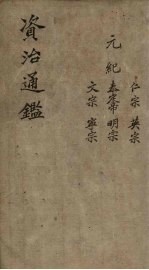 元紀
仁宗 英宗
泰定帝 明宗
文宗 寧宗
資治通鑑